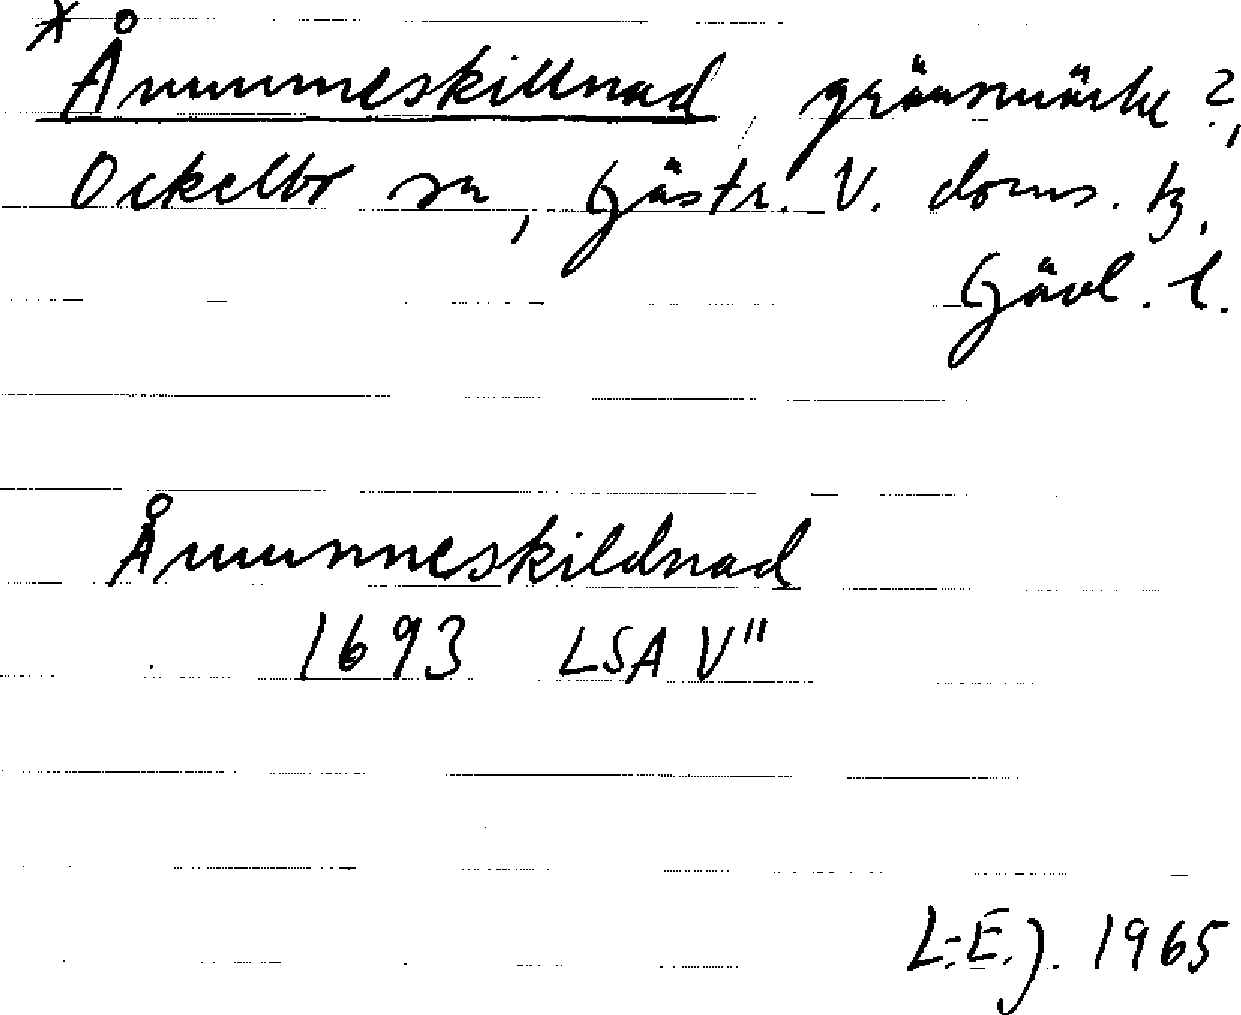 * Åmunneskillnad, gränsmärke?,
Ockelbo sn, Gästr. V. doms. tg,
Gävl. l.
Åmunneskildnad
1693 LSA V"
L-E.J. 1965